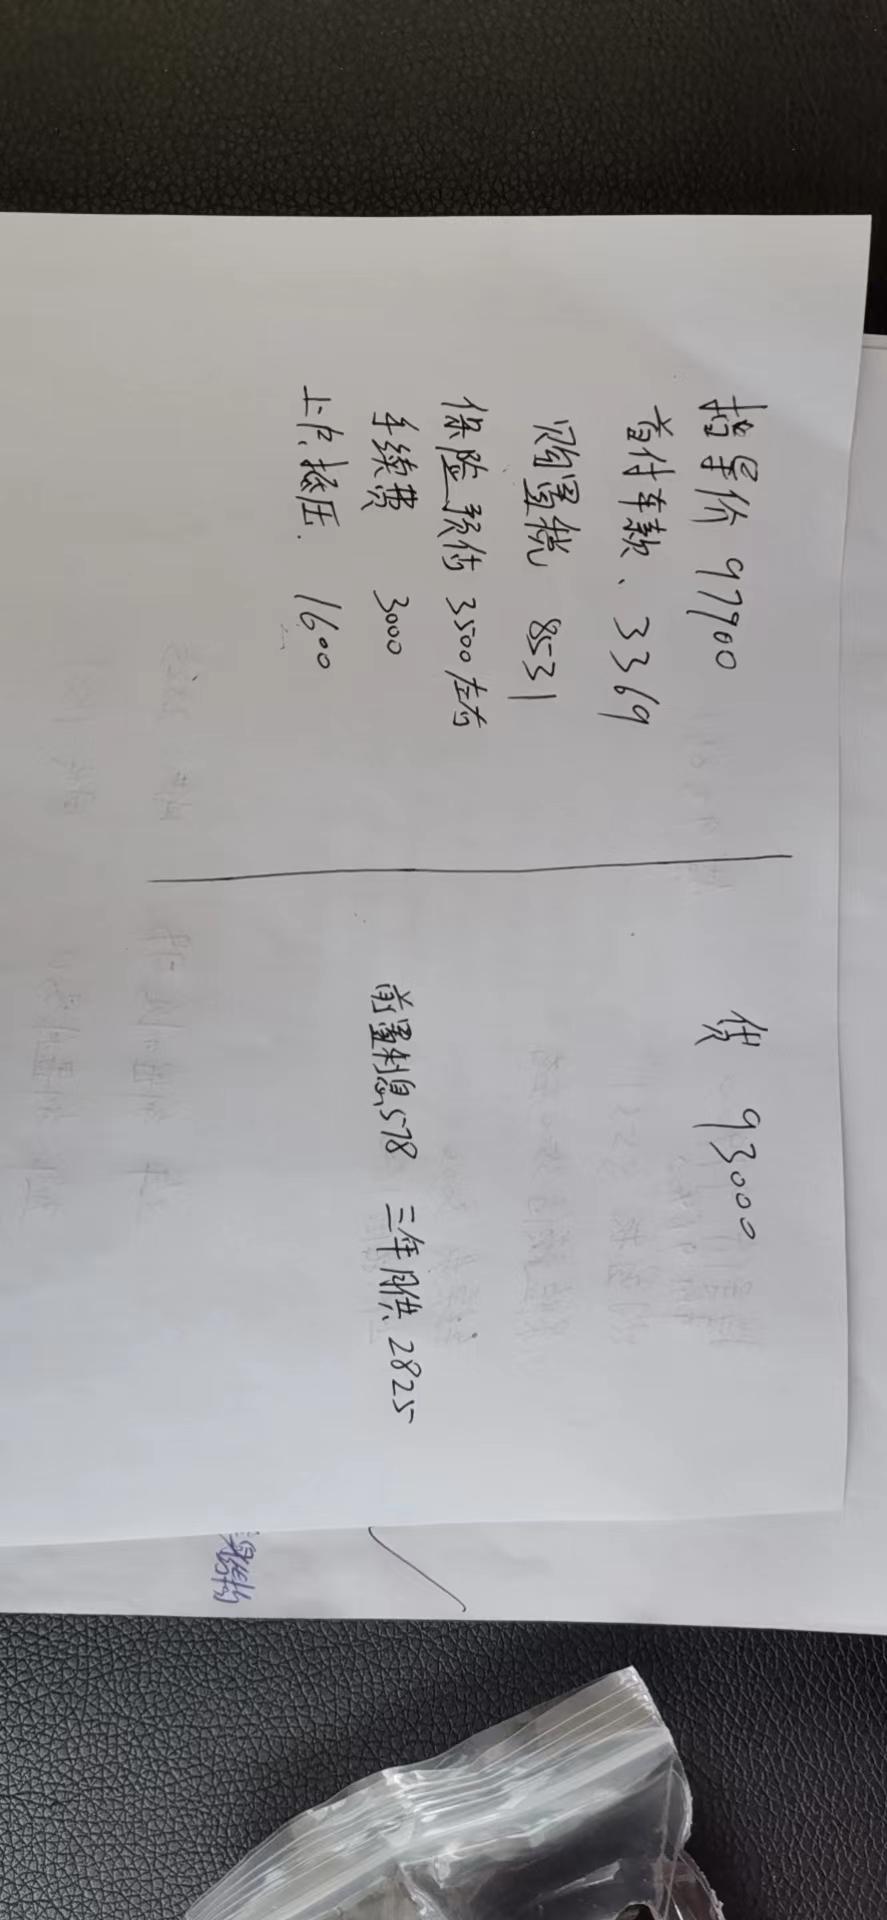 指导价 97900 贷 93000
首付车款、3369
购置税 8531
保险预估 3500左右
手续费 3000 前置利息578 三年月供 2825
上户.抵压. 1600